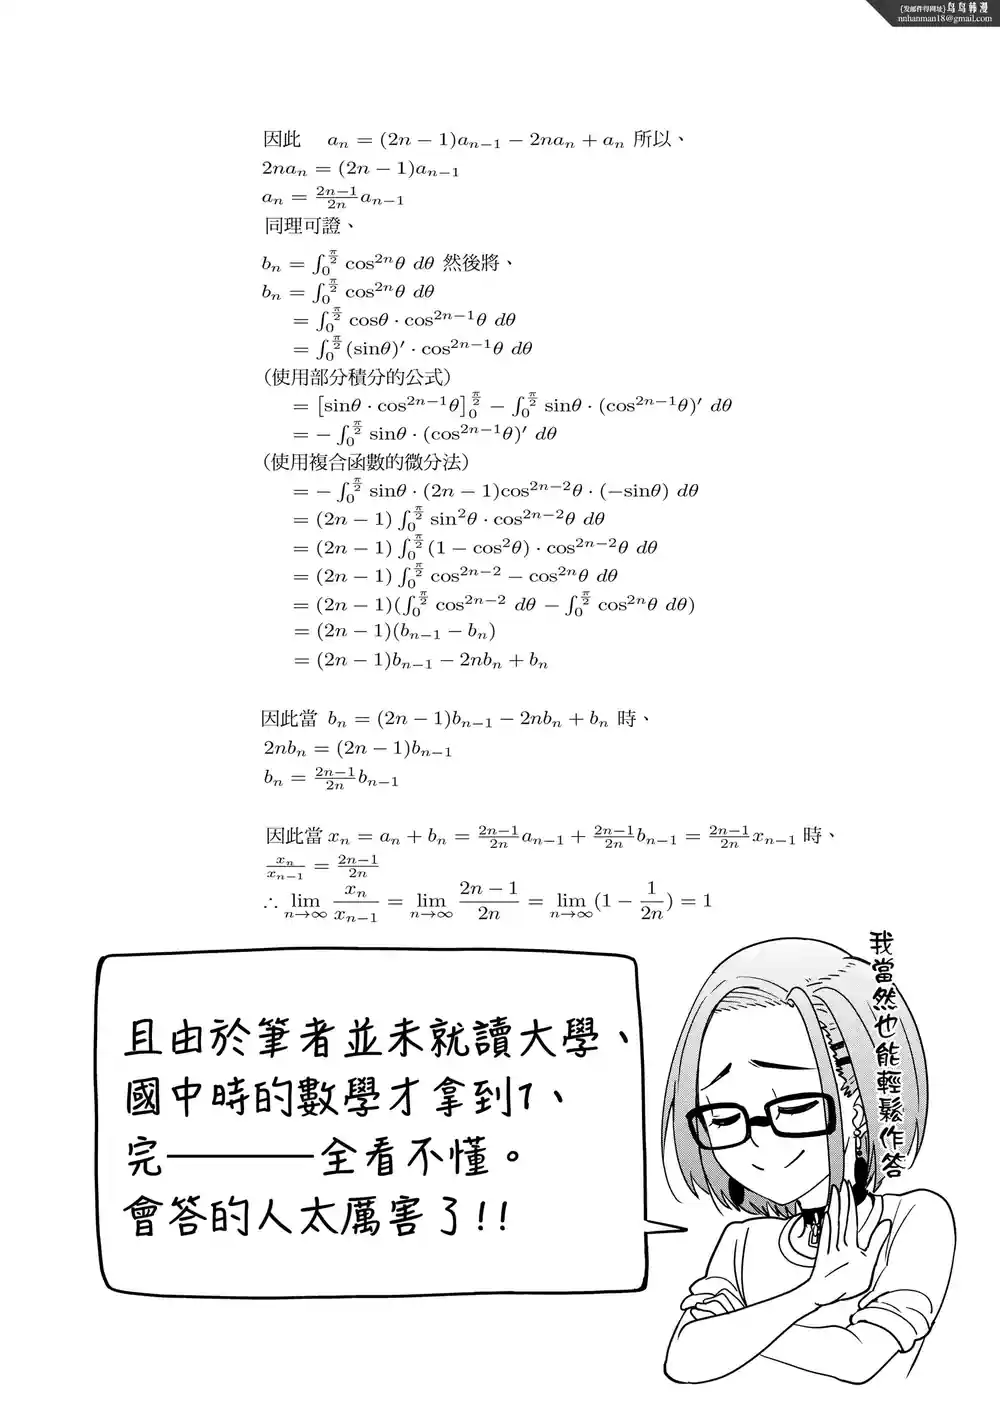 (发邮件得网址)鸟鸟韩漫
nnhanman18@gmail.com
因此 aₙ = (2n − 1)aₙ₋₁ − 2naₙ + aₙ 所以、
2naₙ = (2n − 1)aₙ₋₁
aₙ = \frac{2n−1}{2n} aₙ₋₁
同理可證、
bₙ = ∫_0^{\frac{π}{2}} cos²ⁿθ dθ 然後將、
bₙ = ∫_0^{\frac{π}{2}} cos²ⁿθ dθ
= ∫_0^{\frac{π}{2}} cosθ · cos²ⁿ⁻¹θ dθ
= ∫_0^{\frac{π}{2}} (sinθ)′ · cos²ⁿ⁻¹θ dθ
(使用部分積分的公式)
= [sinθ · cos²ⁿ⁻¹θ]_0^{\frac{π}{2}} − ∫_0^{\frac{π}{2}} sinθ · (cos²ⁿ⁻¹θ)′ dθ
= − ∫_0^{\frac{π}{2}} sinθ · (cos²ⁿ⁻¹θ)′ dθ
(使用複合函數的微分法)
= − ∫_0^{\frac{π}{2}} sinθ · (2n − 1)cos²ⁿ⁻²θ · (−sinθ) dθ
= (2n − 1) ∫_0^{\frac{π}{2}} sin²θ · cos²ⁿ⁻²θ dθ
= (2n − 1) ∫_0^{\frac{π}{2}} (1 − cos²θ) · cos²ⁿ⁻²θ dθ
= (2n − 1) ∫_0^{\frac{π}{2}} cos²ⁿ⁻² − cos²ⁿθ dθ
= (2n − 1)(∫_0^{\frac{π}{2}} cos²ⁿ⁻² dθ − ∫_0^{\frac{π}{2}} cos²ⁿθ dθ)
= (2n − 1)(bₙ₋₁ − bₙ)
= (2n − 1)bₙ₋₁ − 2nbₙ + bₙ
因此當 bₙ = (2n − 1)bₙ₋₁ − 2nbₙ + bₙ 時、
2nbₙ = (2n − 1)bₙ₋₁
bₙ = \frac{2n−1}{2n} bₙ₋₁
因此當 xₙ = aₙ + bₙ = \frac{2n−1}{2n} aₙ₋₁ + \frac{2n−1}{2n} bₙ₋₁ = \frac{2n−1}{2n} xₙ₋₁ 時、
\frac{xₙ}{xₙ₋₁} = \frac{2n−1}{2n}
∴ lim_{n→∞} \frac{xₙ}{xₙ₋₁} = lim_{n→∞} \frac{2n − 1}{2n} = lim_{n→∞} (1 − \frac{1}{2n}) = 1
我當然也能輕鬆作答
且由於筆者並未就讀大學、
國中時的數學才拿到1、
完————全看不懂。
會答的人太厲害了!!